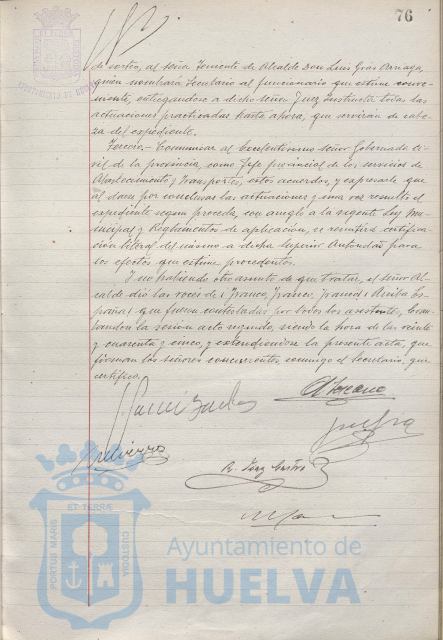 76
de sorteo, al señor Teniente de Alcalde Don Luis Gras Arriaga,
quien nombrará Secretario al funcionario que estime conve-
niente, entregándose a dicho señor Juez Instructor todas las
actuaciones practicadas hasta ahora, que servirán de cabe-
za del expediente.
Tercero.- Comunicar al Excelentísimo señor Gobernador Ci-
vil de la provincia, como Jefe provincial de los servicios de
Abastecimiento y Transportes, estos acuerdos, y expresarle que
al darse por conclusas las actuaciones y una vez resuelto el
expediente según proceda, con arreglo a la vigente Ley Mu-
nicipal y Reglamentos de aplicación, se remitirá certifica-
ción literal del mismo a dicha Superior Autoridad para
los efectos que estime procedentes.
Y no habiendo otro asunto de que tratar, el señor Al-
calde dió las voces de ¡Franco, Franco, Franco! ¡Arriba Es-
paña! que fueron contestadas por todos los asistentes, levan-
tándose la sesión acto seguido, siendo la hora de las veinte
y cuarenta y cinco, y extendiéndose la presente acta, que
firman los señores concurrentes conmigo el Secretario, que
certifico.
ET TERRÆ
PORTUS MARIS
CUSTODIA
Ayuntamiento de
HUELVA